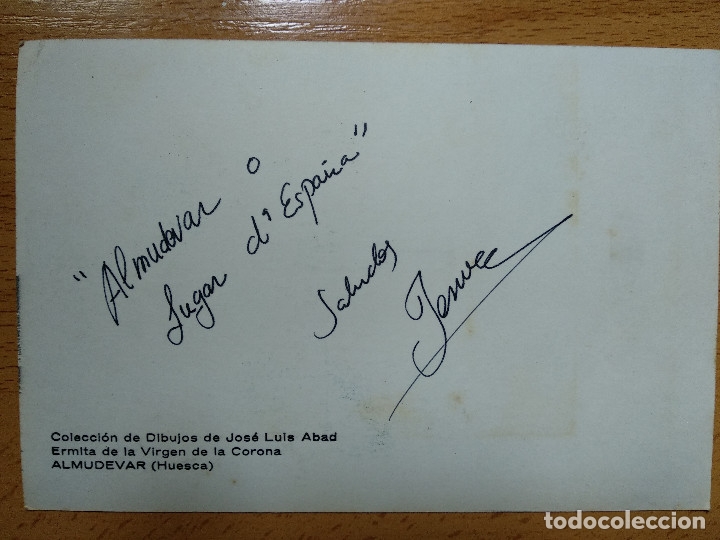 "Almudevar o
lugar d' España"
Saludos
Colección de Dibujos de José Luis Abad
Ermita de la Virgen de la Corona
ALMUDEVAR (Huesca)
todocoleccion